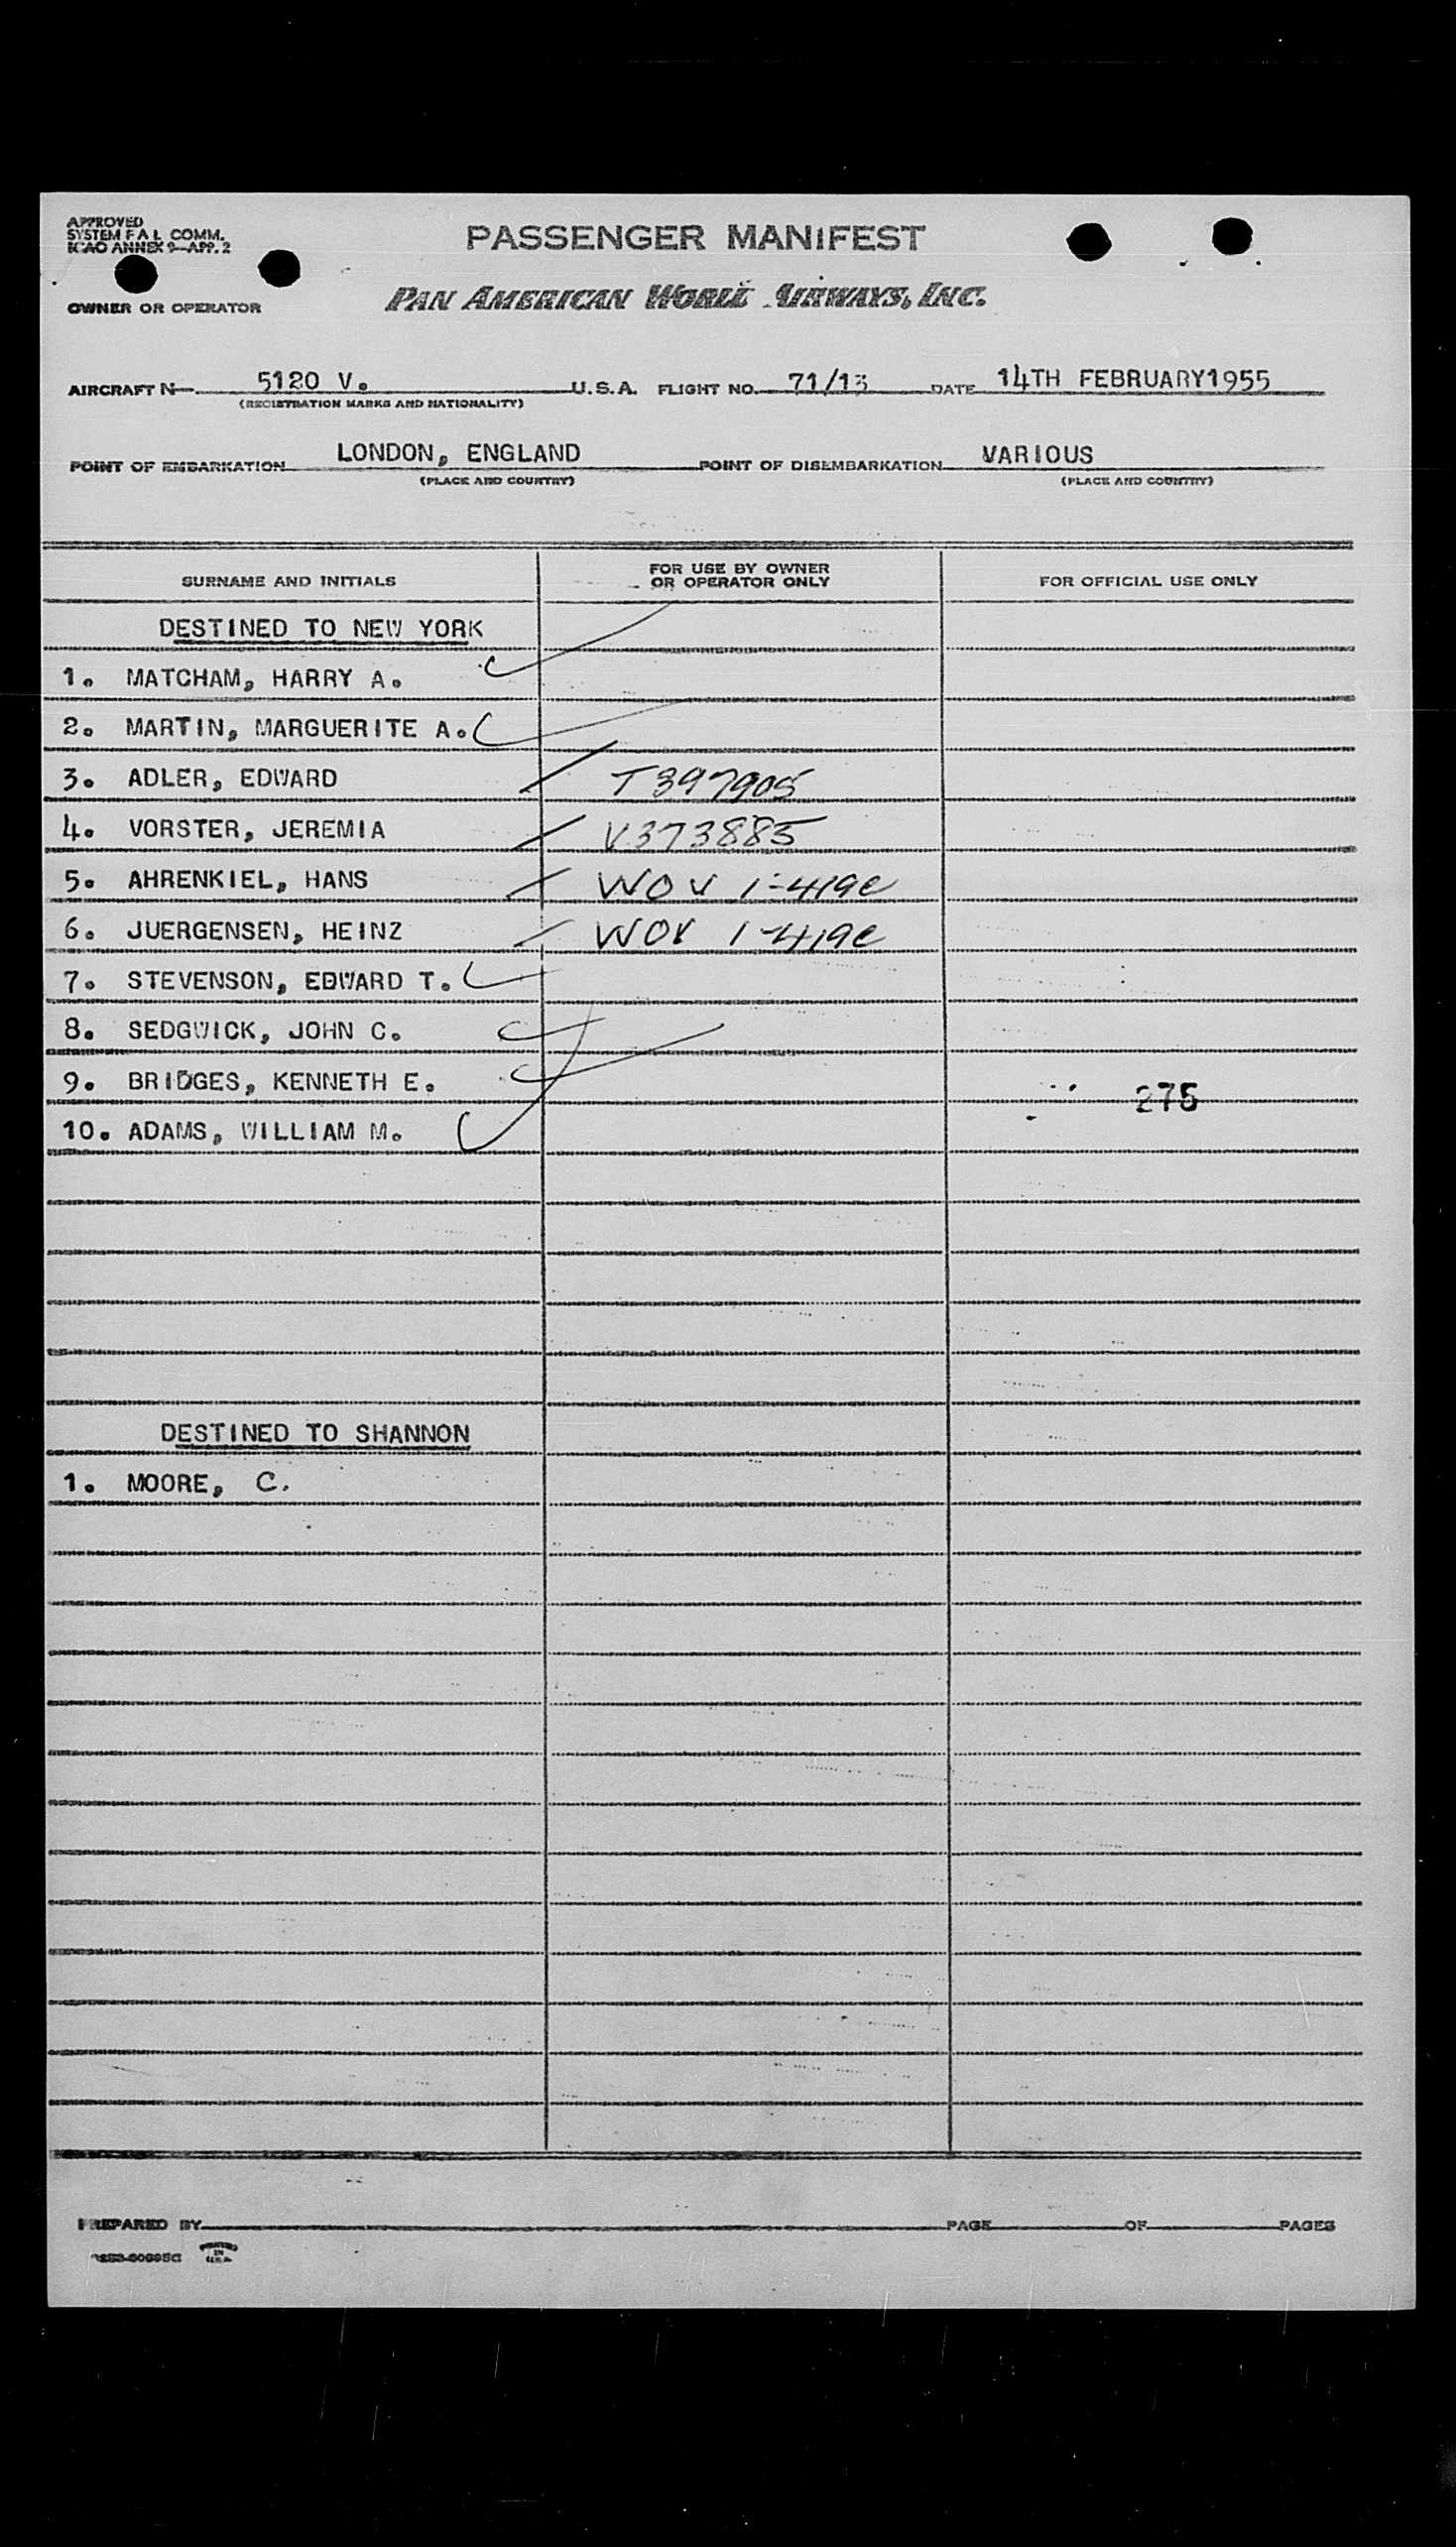 APPROVED
SYSTEM F A L COMM.
ICAO ANNEX 9—APP. 2
PASSENGER MANIFEST
OWNER OR OPERATOR PAN AMERICAN WORLD AIRWAYS, INC.
AIRCRAFT N— 5120 V. U.S.A. FLIGHT NO. 71/13 DATE 14TH FEBRUARY1955
(REGISTRATION MARKS AND NATIONALITY)
POINT OF EMBARKATION LONDON, ENGLAND POINT OF DISEMBARKATION VARIOUS
(PLACE AND COUNTRY) (PLACE AND COUNTRY)
SURNAME AND INITIALS FOR USE BY OWNER OR OPERATOR ONLY FOR OFFICIAL USE ONLY
DESTINED TO NEW YORK
1. MATCHAM, HARRY A.
2. MARTIN, MARGUERITE A.
3. ADLER, EDWARD T397905
4. VORSTER, JEREMIA V373885
5. AHRENKIEL, HANS WOV 1-419C
6. JUERGENSEN, HEINZ WOV 1-419C
7. STEVENSON, EDWARD T.
8. SEDGWICK, JOHN C.
9. BRIDGES, KENNETH E. 275
10. ADAMS, WILLIAM M.
DESTINED TO SHANNON
1. MOORE, C.
PREPARED BY PAGE OF PAGES